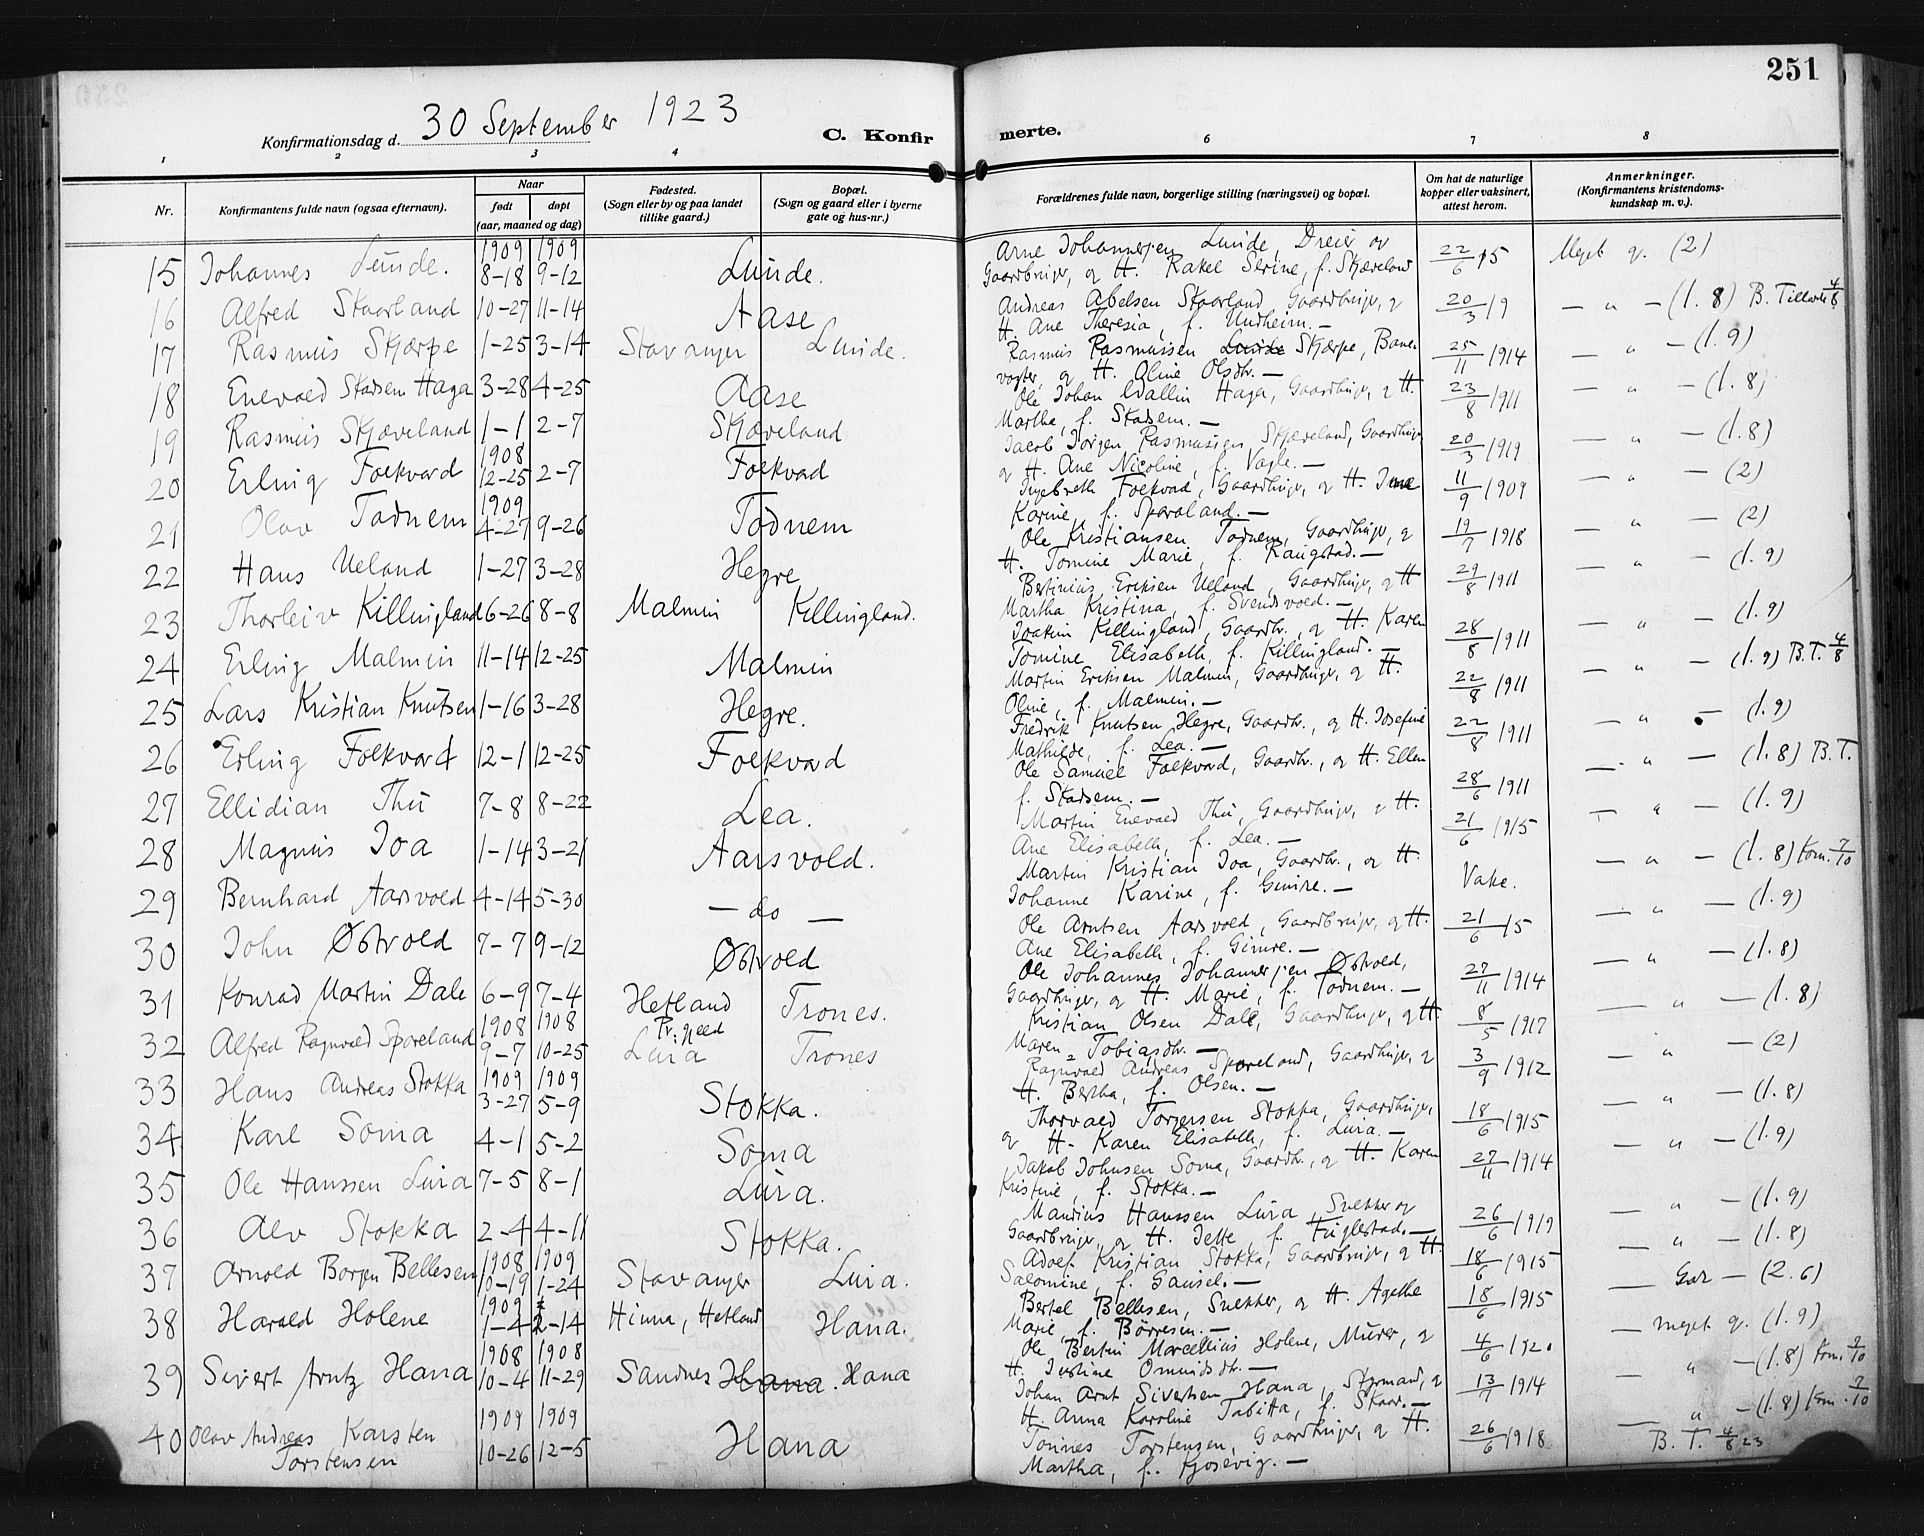 251
Konfirmationsdag d. 30 September 1923
C. Konfirmerte.
1 2 3 4 6 7 8
Nr.
Konfirmantens fulde navn (ogsaa efternavn).
Naar
født
døpt
(aar, maaned og dag)
Fødested.
(Sogn eller by og paa landet
tillike gaard.)
Bopæl.
(Sogn og gaard eller i byerne
gate og hus-nr.)
Forældrenes fulde navn, borgerlige stilling (næringsvei) og bopæl.
Om hat de naturlige
kopper eller vaksinert,
attest herom.
Anmerkninger.
(Konfirmantens kristendoms-
kundskap m. v.).
15 Johannes Lunde. 1909 8-18 1909 9-12 Lunde.
Arne Johannessen Lunde, Dreier og
Gaardbruger, og H. Rakel Serine, f. Skjæveland
22/6 15 Meget g. (2)
16 Alfred Skaarland 10-27 11-14 Aase
Andreas Abelsen Skaarland, Gaardbruger, og
H. Ane Theresia, f. Undheim. —
20/3 19 — " — (1.8) B. 4/8
17 Rasmus Skjærpe 1-25 3-14 Stavanger Lunde.
Rasmus Rasmussen Lunde Skjærpe, Bane-
vogter, og H. Oline Olsdtr. —
25/11 1914 — " — (1.9)
18 Enevald Stadsem Haga 3-28 4-25 Aase
Ole Johan Wallin Haga, Gaardbruger, og H.
Martha, f. Stadsem. —
23/8 1911 — " — (1.8)
19 Rasmus Skjæveland 1-1 2-7 Skjæveland
Jacob Jörgen Rasmussen Skjæveland, Gaardbruger
og H. Ane Nicoline, f. Vagle. —
20/3 1919 — " — (1.8)
20 Erling Folkvord 1908 12-25 2-7 Folkvad
Ingebreth Folkvad, Gaardbruger, og H. Ine
Karine, f. Sporaland. —
11/9 1909 — " — (2)
21 Olav Todnem 1909 4-27 9-26 Todnem
Ole Kristiansen Todnem, Gaardbruger, og
H. Tomine Marie, f. Raugstad. —
19/7 1918 — " — (2)
22 Hans Ueland 1-27 3-28 Hegre
Bertinius Eriksen Ueland, Gaardbruger, og H
Martha Kristina, f. Svendsvold. —
29/8 1911 — " — (1.9)
23 Thorleiv Killingland 6-26 8-8 Malmin Killingland.
Joakim Killingland, Gaardbr., og H. Karen
Tomine Elisabeth, f. Killingland. —
28/8 1911 — " — (1.9)
24 Erling Malmin 11-14 12-25 Malmin
Martin Eriksen Malmin, Gaardbruger, og H.
Oline, f. Malmin. —
22/8 1911 — " — (1.9) B.T. 4/8
25 Lars Kristian Knutsen 1-16 3-28 Hegre.
Fredrik Knutsen Hegre, Gaardbr., og H. Josefine
Mathilde, f. Lea. —
22/8 1911 — " — (1.9)
26 Erling Folkvord 12-1 12-25 Folkvord
Ole Samuel Folkvord, Gaardbr., og H. Ellen
f. Stadsem. —
28/6 1911 — " — (1.8) B.T.
27 Ellidian Thu 7-8 8-22 Lea.
Martin Enevald Thu, Gaardbruger, og H.
Ane Elisabeth, f. Lea. —
21/6 1915 — " — (1.9)
28 Magnus Joa 1-14 3-21 Aarsvold.
Martin Kristian Joa, Gaardbr., og H.
Johanne Karine, f. Gimre. —
Vake. — " — (1.8) Kom. 7/10
29 Bernhard Aarsvold 4-14 5-30 — do —
Ole Arntsen Aarsvold, Gaardbruger, og H.
Ane Elisabeth, f. Gimre. —
21/6 15 — " — (1.9)
30 John Østvold 7-7 9-12 Østvold
Ole Johannes Johannessen Østvold,
Gaardbruger, og H. Marie, f. Todnem. —
27/11 1914 — " — (1.8)
31 Konrad Martin Dale 6-9 7-4 Hetland Trones.
Kristian Olsen Dale, Gaardbruger, og H
Maren Tobiasdtr. —
8/5 1917 — " — (1.8)
32 Alfred Ragnvald Sporeland 1908 9-7 1908 10-25 Lura Trones
Ragnvald Andreas Sporeland, Gaardbruger, og
H. Bertha, f. Olsen. —
3/9 1912 — " — (2)
33 Hans Andreas Stokka 1909 3-27 1909 5-9 Stokka.
Thorvald Torgersen Stokka, Gaardbruger,
og H. Karen Elisabeth, f. Lura. —
18/6 1915 — " — (1.8)
34 Karl Soma 4-1 5-2 Soma
Jakob Johnsen Soma, Gaardbr., og H. Karen
Kristine, f. Stokka. —
27/11 1914 — " — (1.9)
35 Ole Hanssen Lura 7-5 8-1 Lura.
Maudius Hanssen Lura, Snekker og
Gaardbruger, og H. Jette, f. Fuglestad. —
26/6 1919 — " — (1.9)
36 Alv Stokka 2-4 4-11 Stokka.
Adolf Kristian Stokka, Gaardbruger, og H.
Salomine, f. Gausel. —
18/6 1915 — " — (1.8)
37 Arnold Borgen Bellesen 1908 10-19 1909 1-24 Stavanger Lura.
Bertel Bellesen, Snekker, og H. Agathe
Marie, f. Börresen. —
18/6 1915 — Godt — (2.6)
38 Harald Holene 1909 1-4 2-14 Hinna, Hetland Hana.
Ole Bertin Marcellius Holene, Murer, og
H. Justine Omundsdtr. —
4/6 1920 — meget g. (1.9)
39 Sivert Arntz Hana 1908 10-4 1908 11-29 Sandnes Hana. Hana
Johan Arnt Sivertsen Hana, Styrmand, og
H. Anna Karoline Tabitta, f. Skaar. —
13/7 1914 — " — (1.8) Kom. 7/10
40 Olav Andreas Karsten
Torstensen 1909 10-26 1909 12-5 Hana
Tönnes Torstensen, Gaardbruger, og H.
Martha, f. Fjosevig. —
26/6 1918 — " — (1.8) Kom. 7/10
B. T. 4/8 23